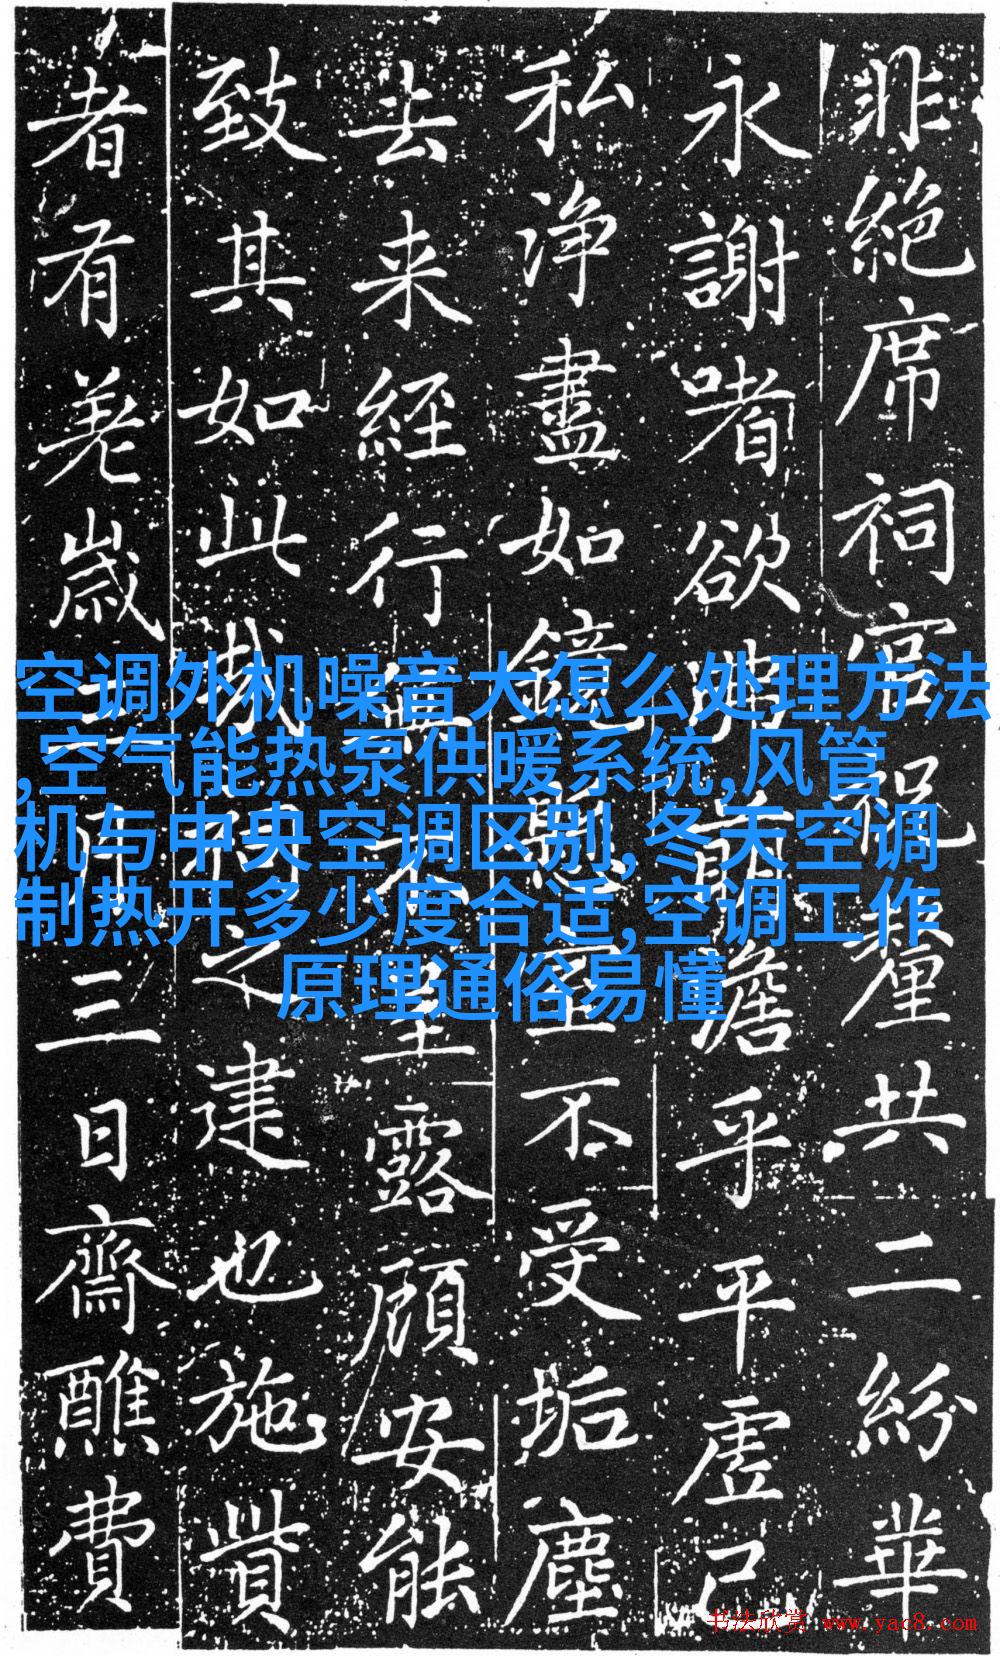 非絶席祠官祝釐共二紛華
永謝嗜欲乎平虛己
私淨盡如鏡不受垢塵
去来經行露顧安能
致其如此建也施貲
者有羌歲三日齋醮費
空调外机噪音大怎么处理方法
,空气能热泵供暖系统,风管
机与中央空调区别,冬天空调
制热开多少度合适,空调工作
原理通俗易懂
书法欣赏 www.yac8.com